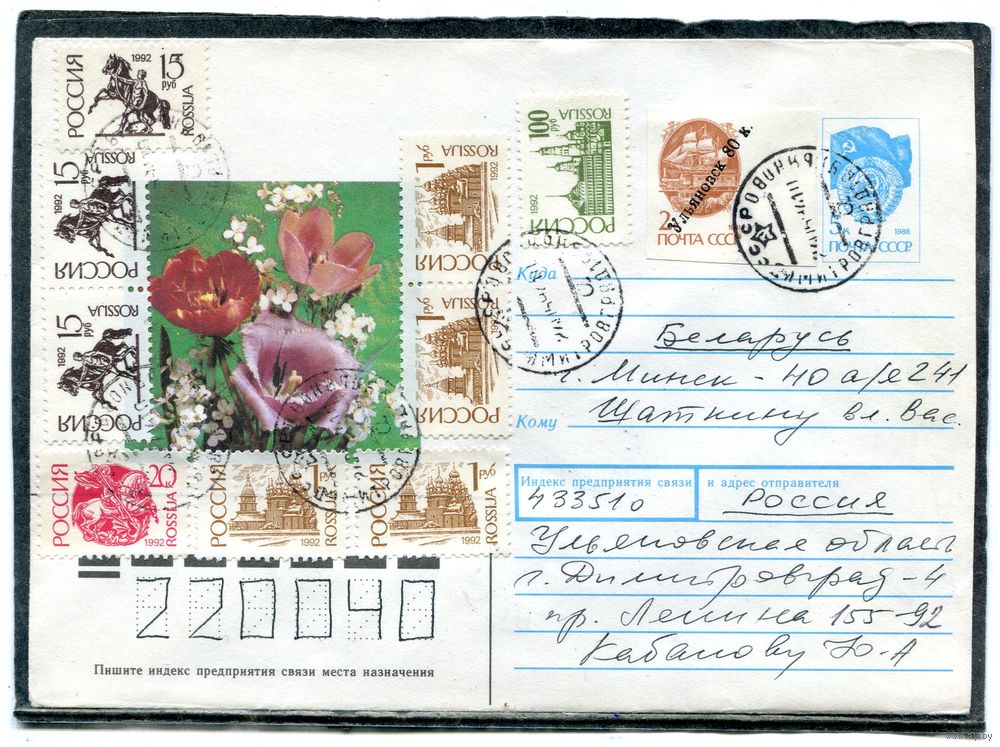 РОССИЯ 1992 15 руб ROSSIJA
РОССИЯ 1992 15 руб
РОССИЯ 1992 15 руб
РОССИЯ 1992 1 руб ROSSIJA
РОССИЯ 1992 1 руб ROSSIJA
РОССИЯ 1992 100 руб ROSSIJA
Ульяновск 80 к.
ПОЧТА СССР
1988
ПОЧТА СССР
Куда
Беларусь
г. Минск - 40 а/я 241
Кому
Щаткину вл. Вас.
РОССИЯ 20 ROSSIJA 1992
РОССИЯ 1 руб ROSSIJA 1992
РОССИЯ 1 руб ROSSIJA 1992
Индекс предприятия связи и адрес отправителя
433510 Россия
Ульяновская область
г. Димитровград-4
пр. Ленина 155-92
Кабанову Ю-А
220040
Пишите индекс предприятия связи места назначения